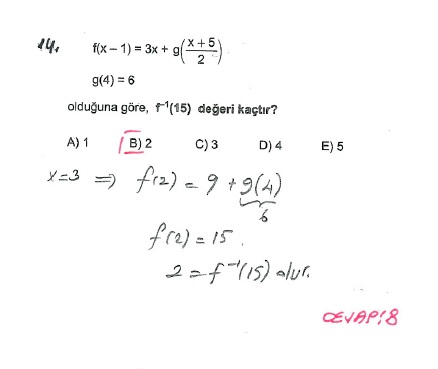 14. f(x – 1) = 3x + g(x + 5 / 2)
g(4) = 6
olduğuna göre, f⁻¹(15) değeri kaçtır?
A) 1 B) 2 C) 3 D) 4 E) 5
x=3 ⇒ f(2) = 9 + g(4)
6
f(2) = 15.
2 = f⁻¹(15) olur.
CEVAP: B